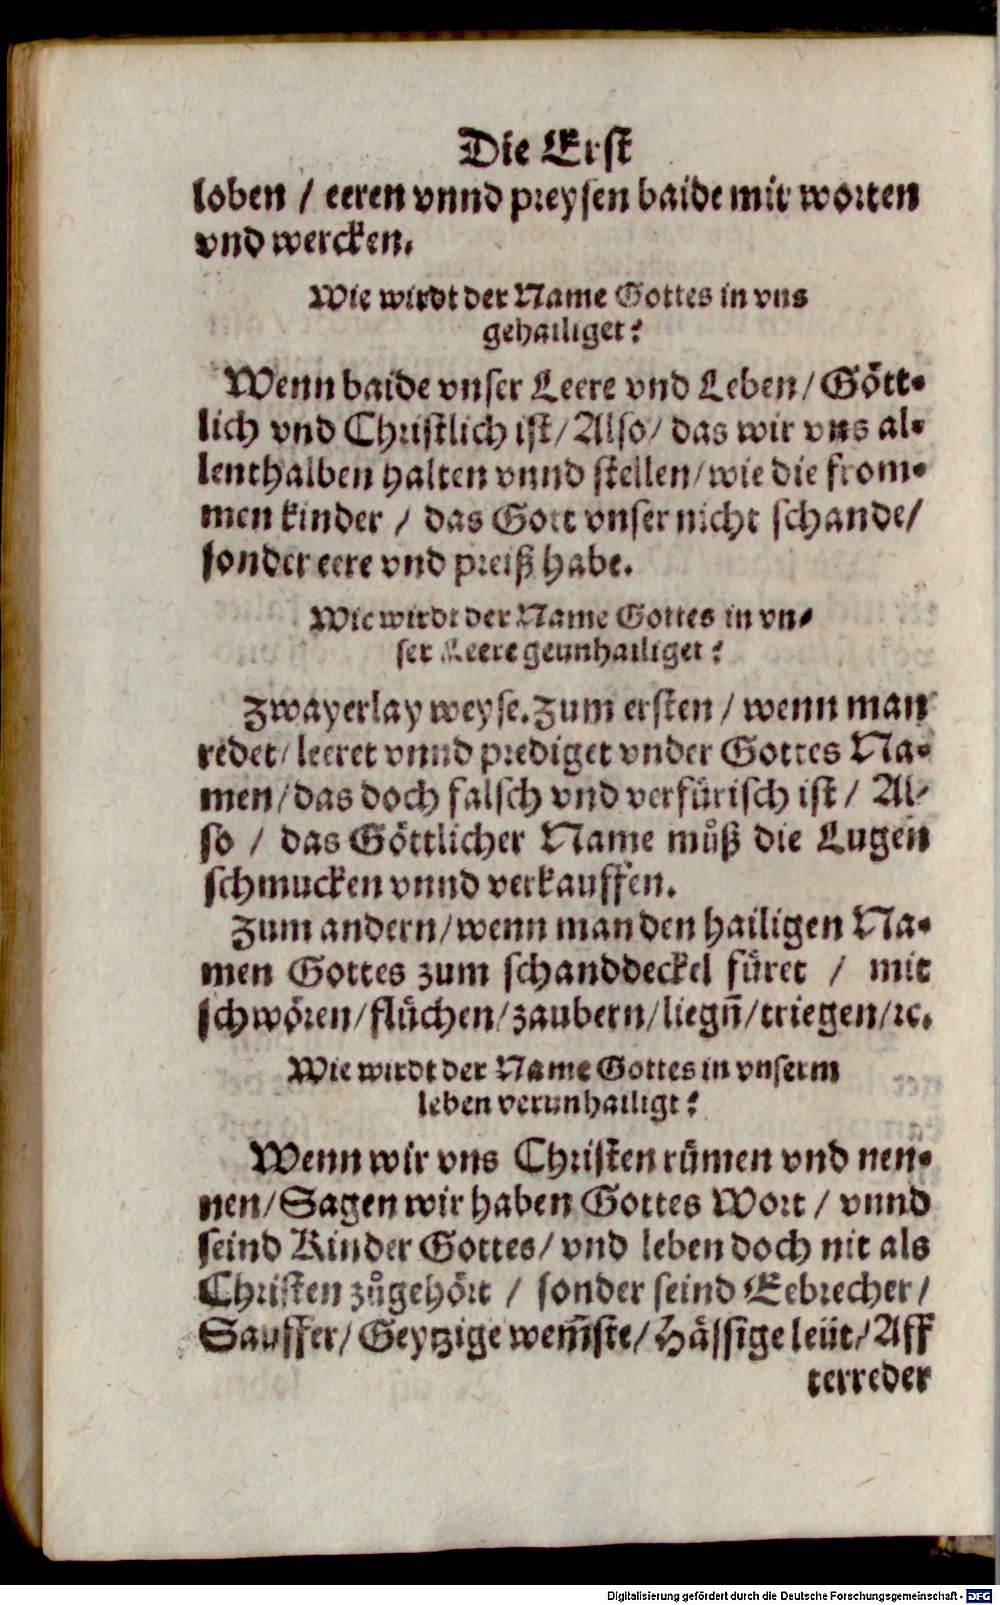 Die Erst
loben / eeren vnnd preysen baide mit worten
vnd wercken.
Wie wirdt der Name Gottes in vns
gehailiget?
Wenn baide vnser Leere vnd Leben / Gött-
lich vnd Christlich ist / Also / das wir vns al-
lenthalben halten vnnd stellen / wie die from-
men kinder / das Gott vnser nicht schande /
sonder eere vnd preiß habe.
Wie wirdt der Name Gottes in vn-
ser Leere geunhailiget?
Zwayerlay weyse. Zum ersten / wenn man
redet / leeret vnnd prediget vnder Gottes Na-
men / das doch falsch vnd verfürisch ist / Al-
so / das Göttlicher Name můß die Lugen
schmucken vnnd verkauffen.
Zum andern / wenn man den hailigen Na-
men Gottes zum schanddeckel füret / mit
schwören / flůchen / zaubern / liegn̄ / triegen / ꝛc.
Wie wirdt der Name Gottes in vnserm
leben verunhailigt?
Wenn wir vns Christen růmen vnd nen-
nen / Sagen wir haben Gottes Wort / vnnd
seind Kinder Gottes / vnd leben doch nit als
Christen zůgehört / sonder seind Eebrecher /
Sauffer / Geytzige wem̄ste / Hässige leüt / Aff
terreder
Digitalisierung gefördert durch die Deutsche Forschungsgemeinschaft - DFG